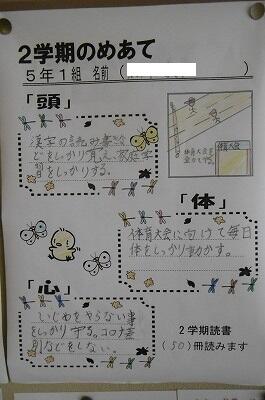 2学期のめあて
5年1組 名前（　　　）
「頭」
漢字の読み書き
どをしっかり覚え、家庭学
習をしっかりする。
体育大会
体育大会に
「体」
体育大会に向けて毎日
体をしっかり動かす。
「心」
いじめをやらない事
をしっかり守る。コロナ差
別などをしない。
2学期読書
（50）冊読みます